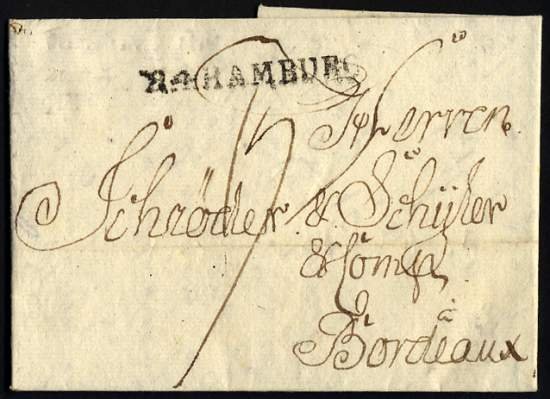 R.4.HAMBURG
Herren
Schröder & Schÿler
& Comp
à
Bordeaux